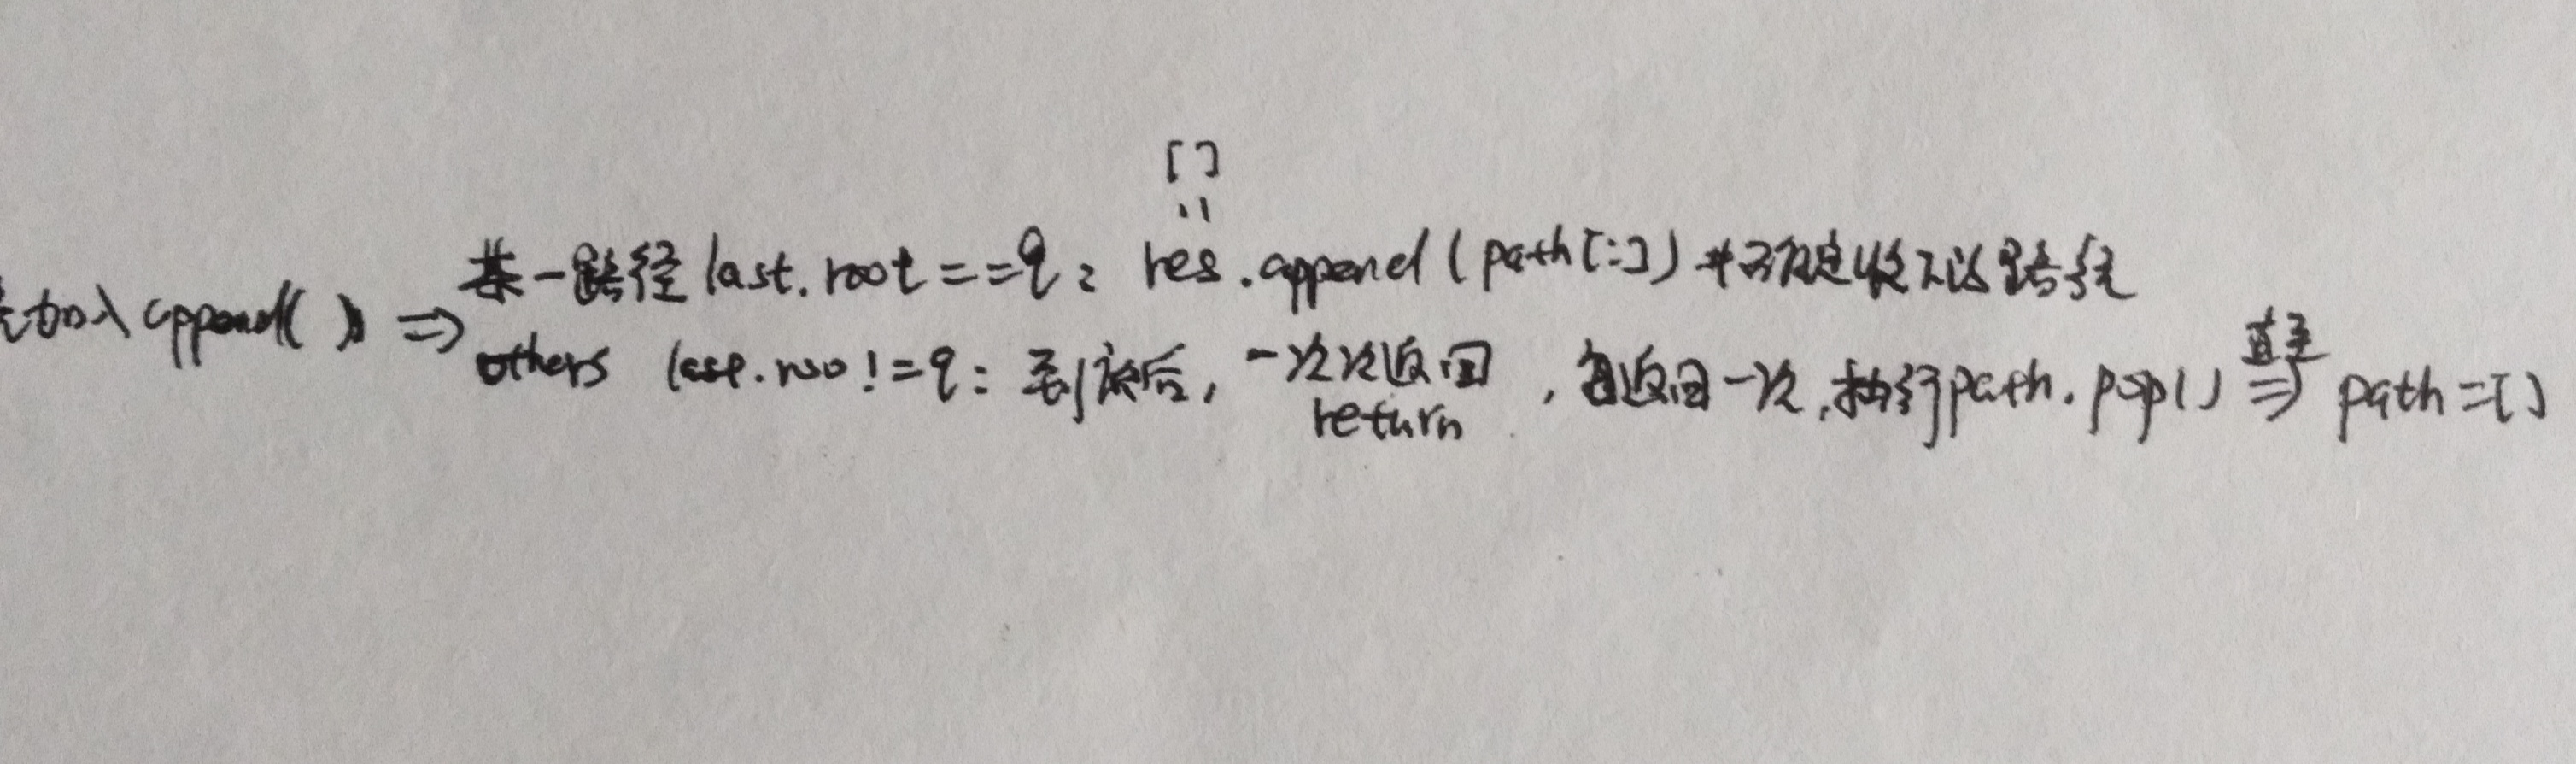 []
某一路径 last.root==q: res.append(path[:]) #确定收入该路径
加入append() ⇒
others last.roo!=q: 到底后, 一次次返回, 每返回一次,执行path.pop() 直至⇒ path=[]
return